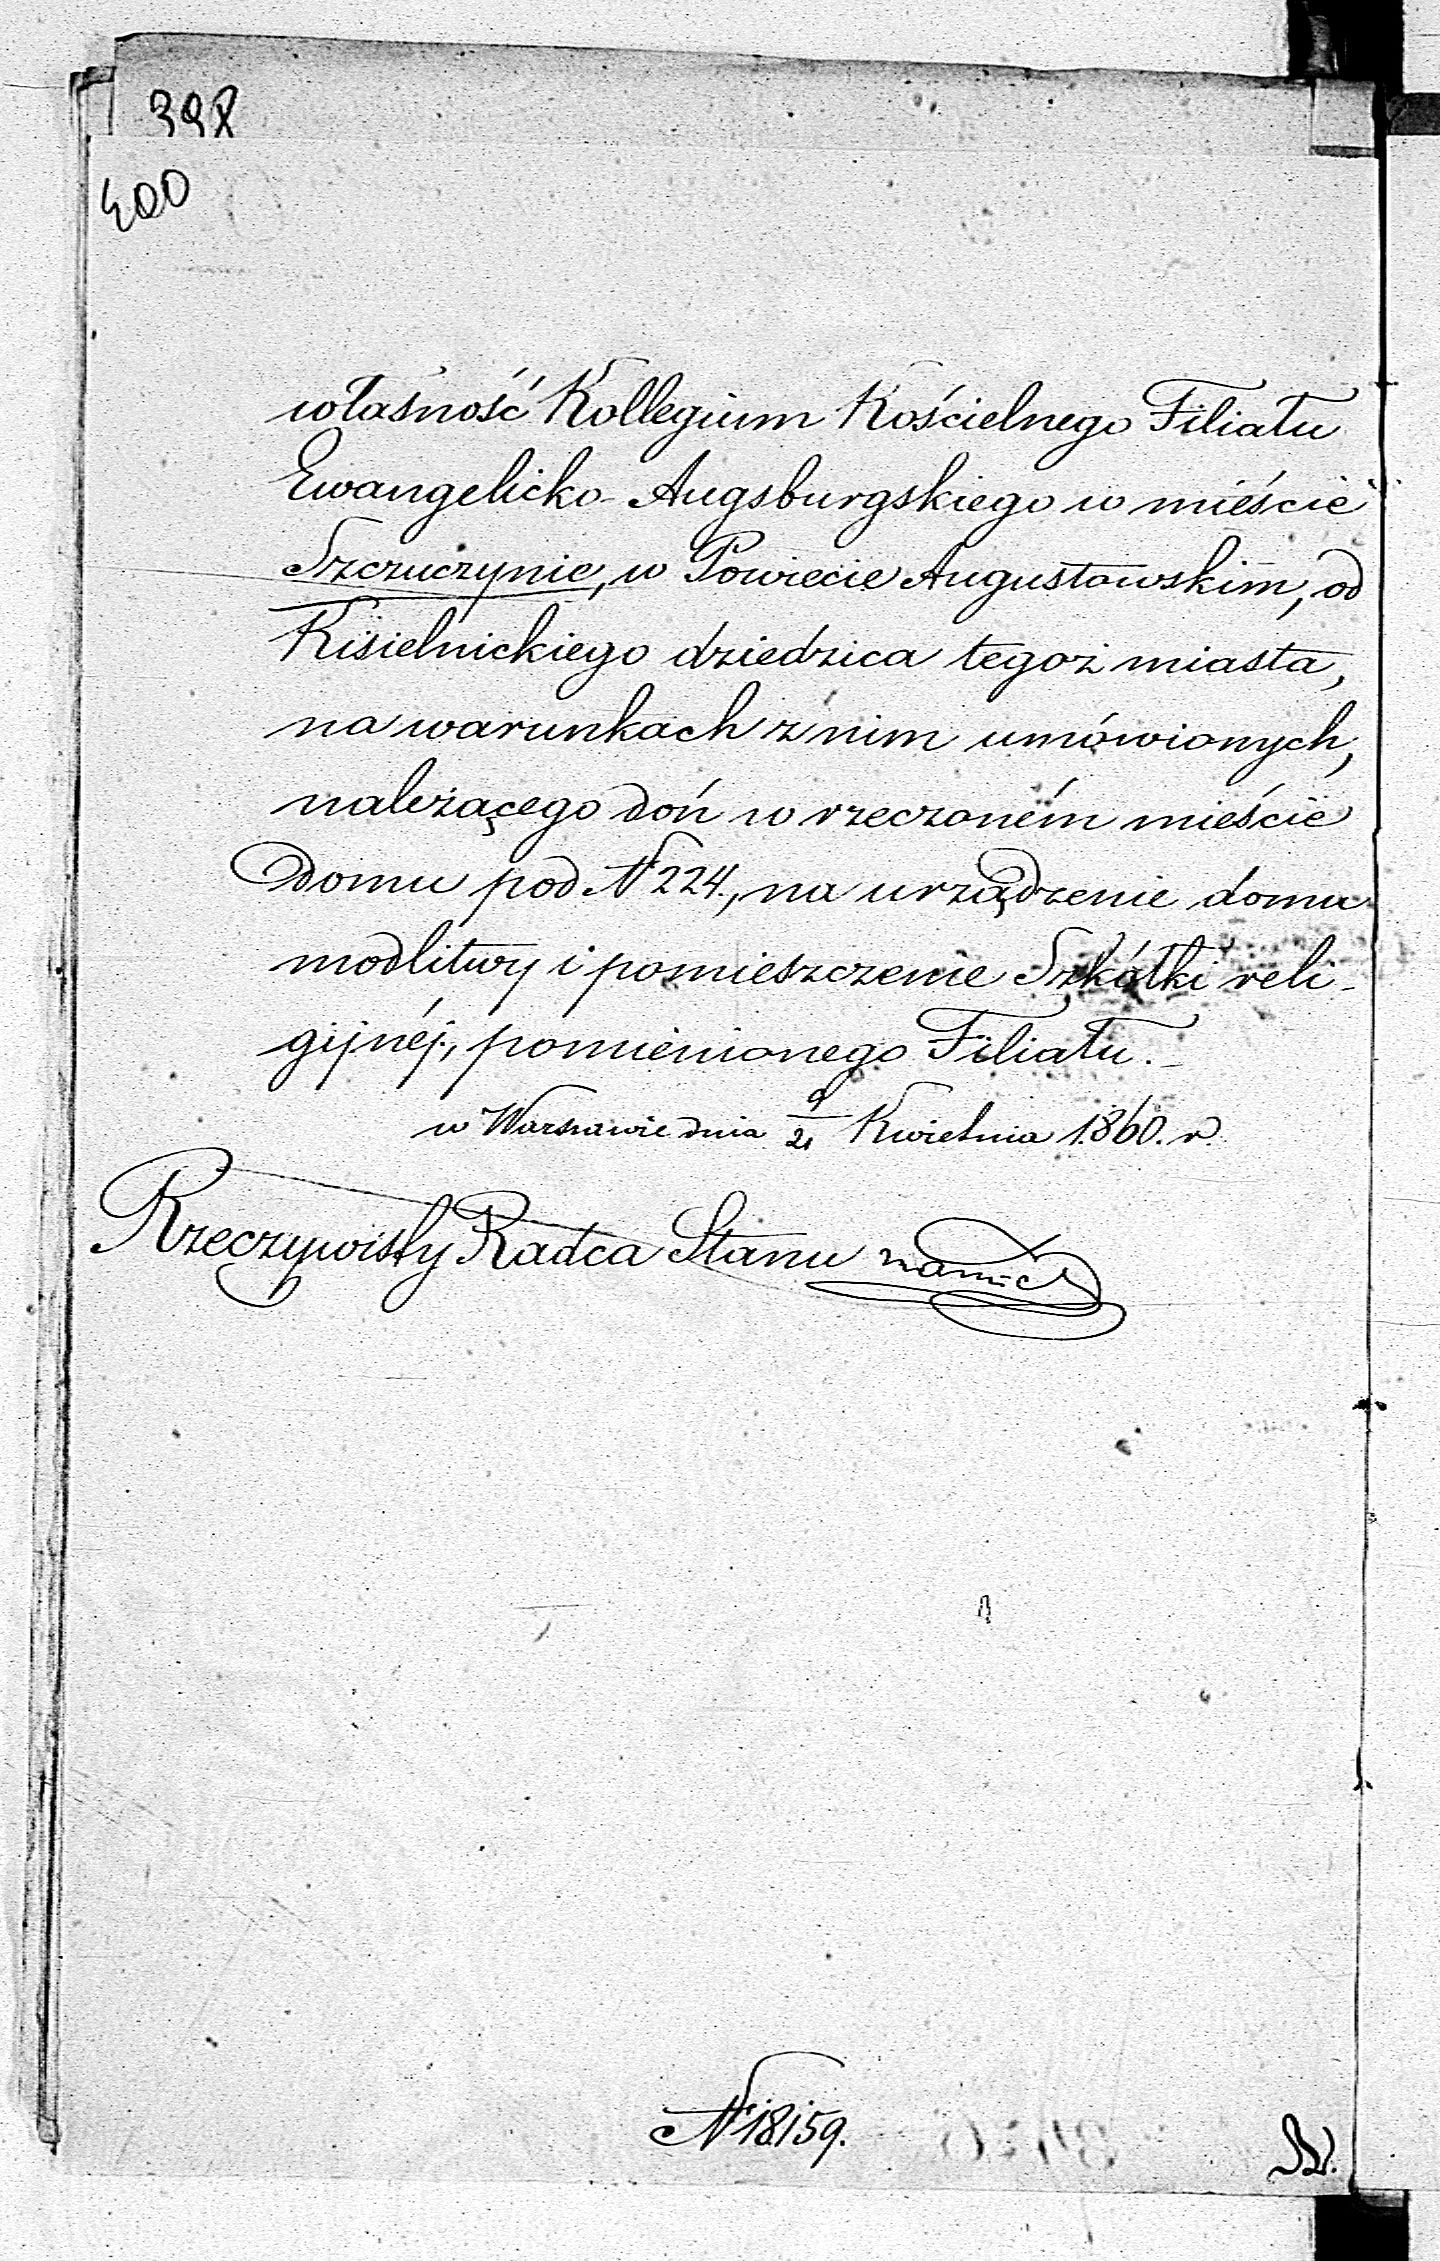 398
400
własność Kollegium Kościelnego Filiału
Ewangelicko-Augsburgskiego w mieście
Szczuczynie, w Powiecie Augustowskim, od
Kisielnickiego dziedzica tegoż miasta,
na warunkach z nim umówionych,
należącego doń w rzeczoném mieście
Domu pod N 224., na urządzenie domu
modlitwy i pomieszczenie Szkółki reli-
gijnéj, pomienionego Filiału.
w Warszawie dnia 9/21 Kwietnia 1860. r.
Rzeczywisty Radca Stanu
N 18159.